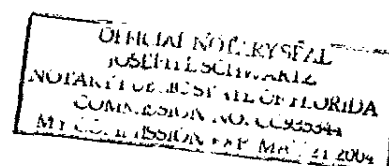 OFFICIAL NOTARY SEAL
JOSEPH L SCHWARTZ
NOTARY PUBLIC STATE OF FLORIDA
COMMISSION NO.
MY COMMISSION EXP. MAY 21 2004